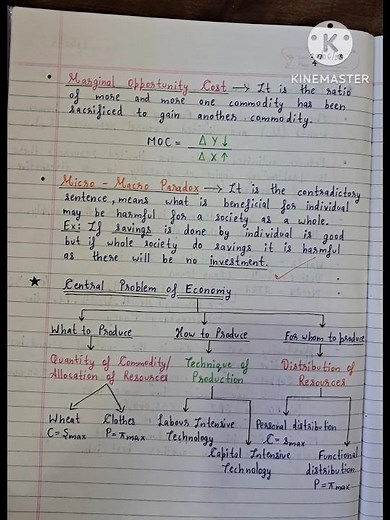 K
KINEMASTER
• Marginal Opportunity Cost → It is the ratio
of more and more one commodity has been
sacrificed to gain another commodity.
MOC = Δ Y↓
Δ X↑
• Micro - Macro Paradox → It is the contradictory
sentence, means what is beneficial for individual
may be harmful for a society as a whole.
Ex: If savings is done by individual is good
but if whole society do savings it is harmful
as there will be no investment.
★ Central Problem of Economy
What to Produce How to Produce For whom to produce
Quantity of Commodity/ Technique of Distribution of
Allocation of Resources Production Resources
Wheat Clothes Labour Intensive Personal distribution
C = Smax P = πmax Technology C = Smax
Capital Intensive Functional
Technology distribution
P = πmax